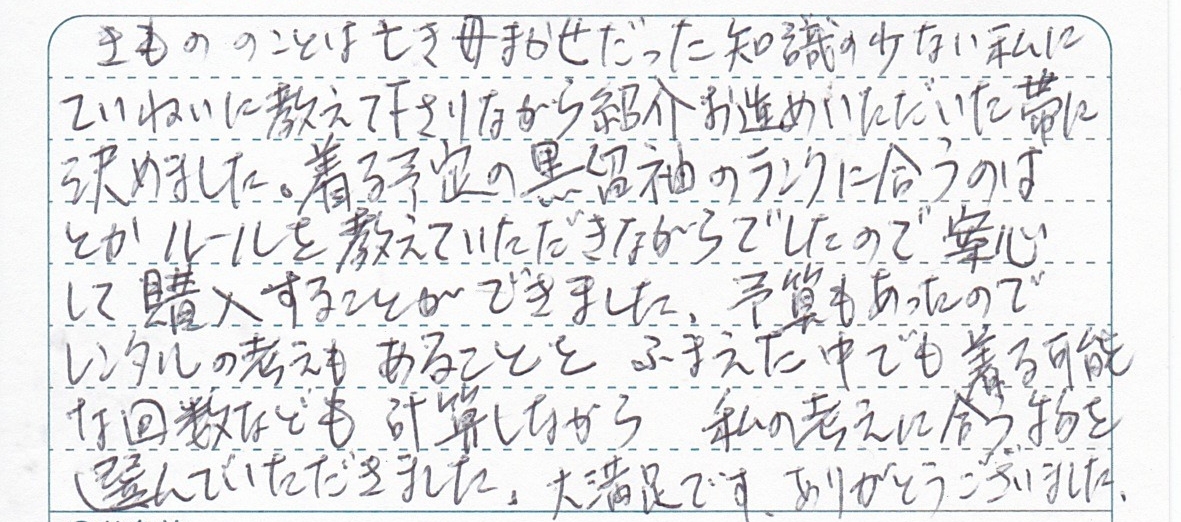 きもののことは亡き母まかせだった知識の少ない私に
ていねいに教えて下さりながら紹介お進めいただいた帯に
決めました。着る予定の黒留袖のランクに合うのは
とかルールを教えていただきながらでしたので安心
して購入することができました。予算もあったので
レンタルの考えもあることをふまえた中でも着る可能
な回数なども計算しながら 私の考えに合う物を
選んでいただきました。大満足です。ありがとうございました。